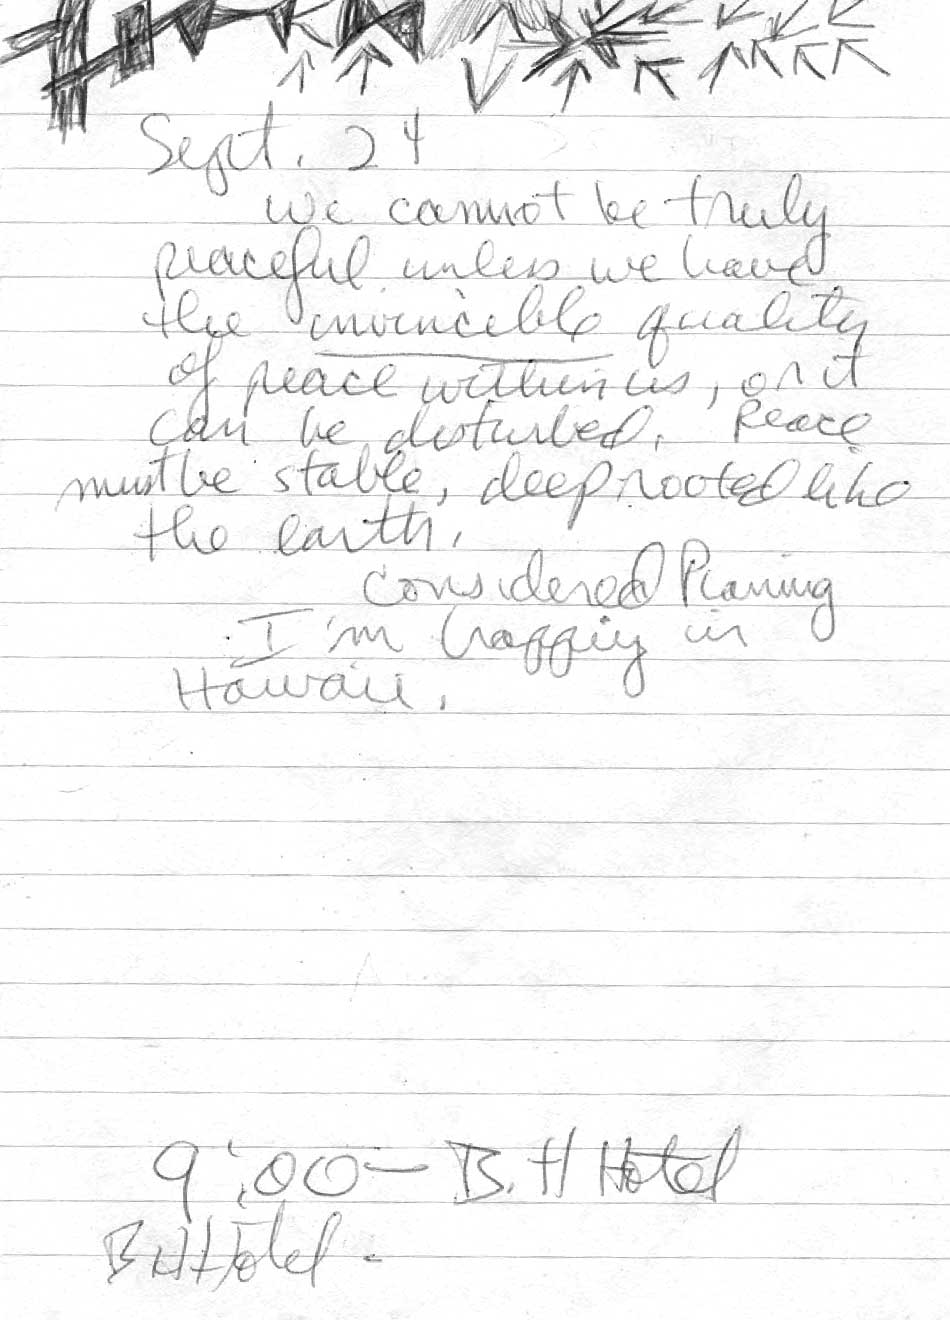 Sept. 24
We cannot be truly
peaceful unless we have
the invincible quality
of peace within us, or it
can be disturbed. Peace
must be stable, deeprooted like
the earth.
Considered Planing
I'm happiy in
Hawaii.
9:00 - B.H Hotel
BH Hotel -